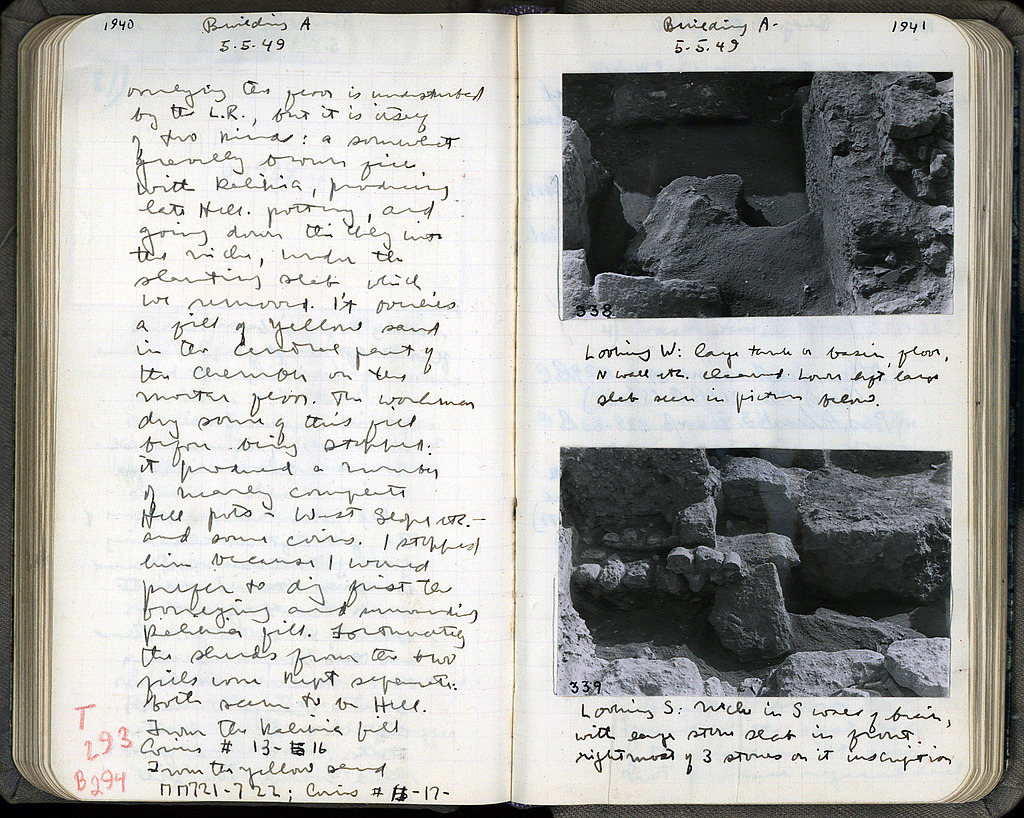 1940 Building A
5.5.49
overlying the floor is undisturbed
by the L.R., but it is
of two kinds: a somewhat
gravelly brown fill
with Kalikia, producing
late Hell. pottery, and
going down
the niche, under the
slanting slab which
we removed. It overlies
a fill of yellow sand
in the central part of
the chamber on the
mortar floor. The workman
dug some of this fill
before being stopped:
it produced a number
of nearly complete
Hell pots - West Slope etc. -
and some coins. I stopped
him because I would
prefer to dig first the
and surrounding
Kalikia fill. Fortunately
the sherds from the two
fills were kept separate.
Both seem to be Hell.
From the Kalikia fill
Coins # 13-16
From the yellow sand
ΠΠ721-722; Coins # -17-
T
293
B294
Building A-
1941
5.5.49
338
Looking W: large tank or basin, floor,
N wall etc. cleaned. Lower left, large
slab seen in picture below.
339
Looking S: niche in S wall of basin,
with large stone slab in front.
rightmost of 3 stones on it inscription